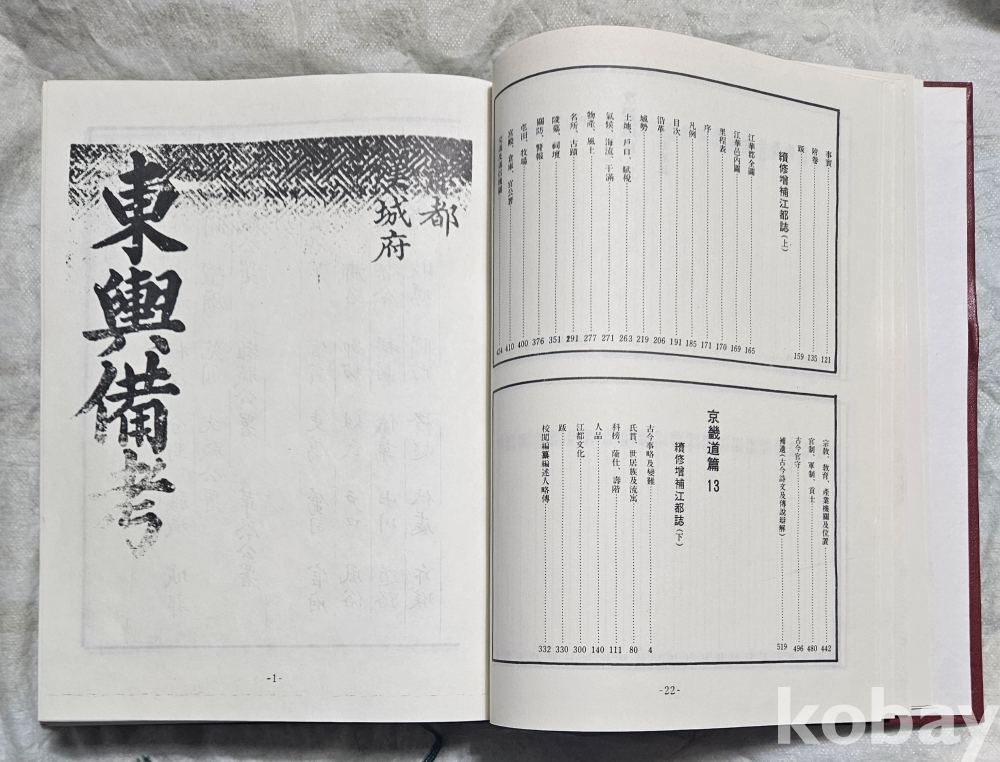 事實 121
附卷 135
跋 159
續修增補江都誌(上)
江華郡全圖 165
江華邑內圖 169
里程表 170
序 171
凡例 185
目次 191
沿革 206
城勢 219
土地、戶口、賦稅 263
氣候、海流、干滿 271
物產、風土 277
名所、古蹟 291
陵墓、祠壇 351
關防、警報 376
屯田、牧場 400
宮殿、倉庫、官公署 410
宗敎、敎育、產業機關及位置 442
官制、軍制、貢士 480
古今官守 496
補遺(古今詩文及傳說辯解) 519
京畿道篇 13
續修增補江都誌(下)
古今事略及變難 4
氏貫、世居族及流寓 80
科榜、蔭仕、壽階 111
人品 140
江都文化 300
跋 330
校閱編纂編述人略傳 332
-22-
都
城府
東輿備考
-1-
kobay